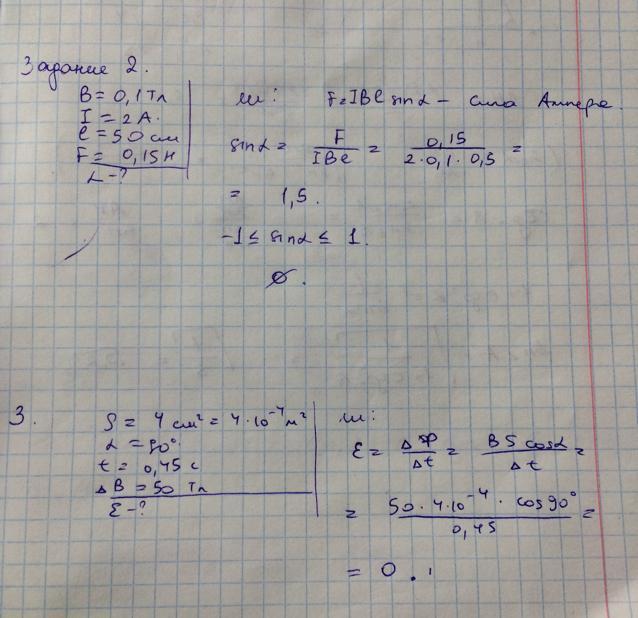 Задание 2.
B = 0,1 Тл
I = 2 А.
l = 50 см
F = 0,15 Н
α - ?
ш: F = IBl sinα - сила Ампера.
sinα = F / IBl = 0,15 / 2·0,1·0,5 =
= 1,5.
-1 ≤ sinα ≤ 1.
∅.
3.
S = 4 см² = 4·10⁻⁴ м²
α = 90°
t = 0,45 с
ΔB = 50 Тл
ε - ?
ш:
ε = ΔФ / Δt = B S cosα / Δt =
= 50·4·10⁻⁴· cos90° / 0,45 =
= 0.